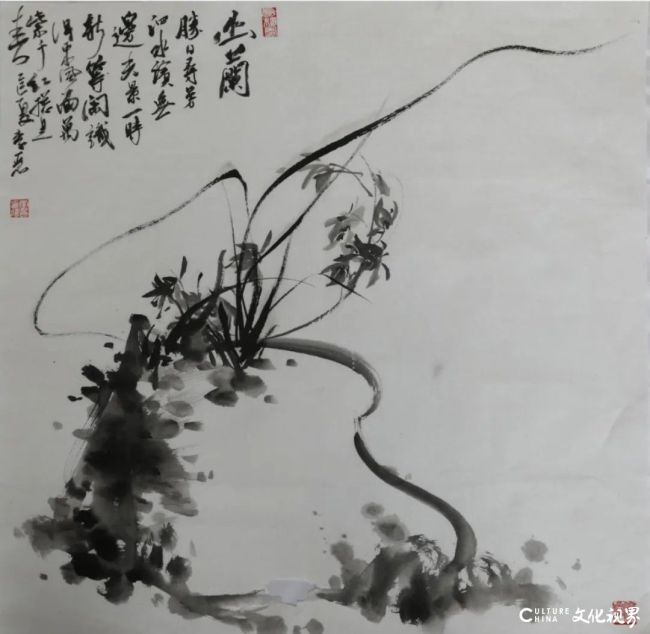 幽蘭
勝日尋芳
泗水濱無
邊光景一時
新等閑識
得東風面萬
紫千紅總是
春
CULTURE
CHINA 文化视界